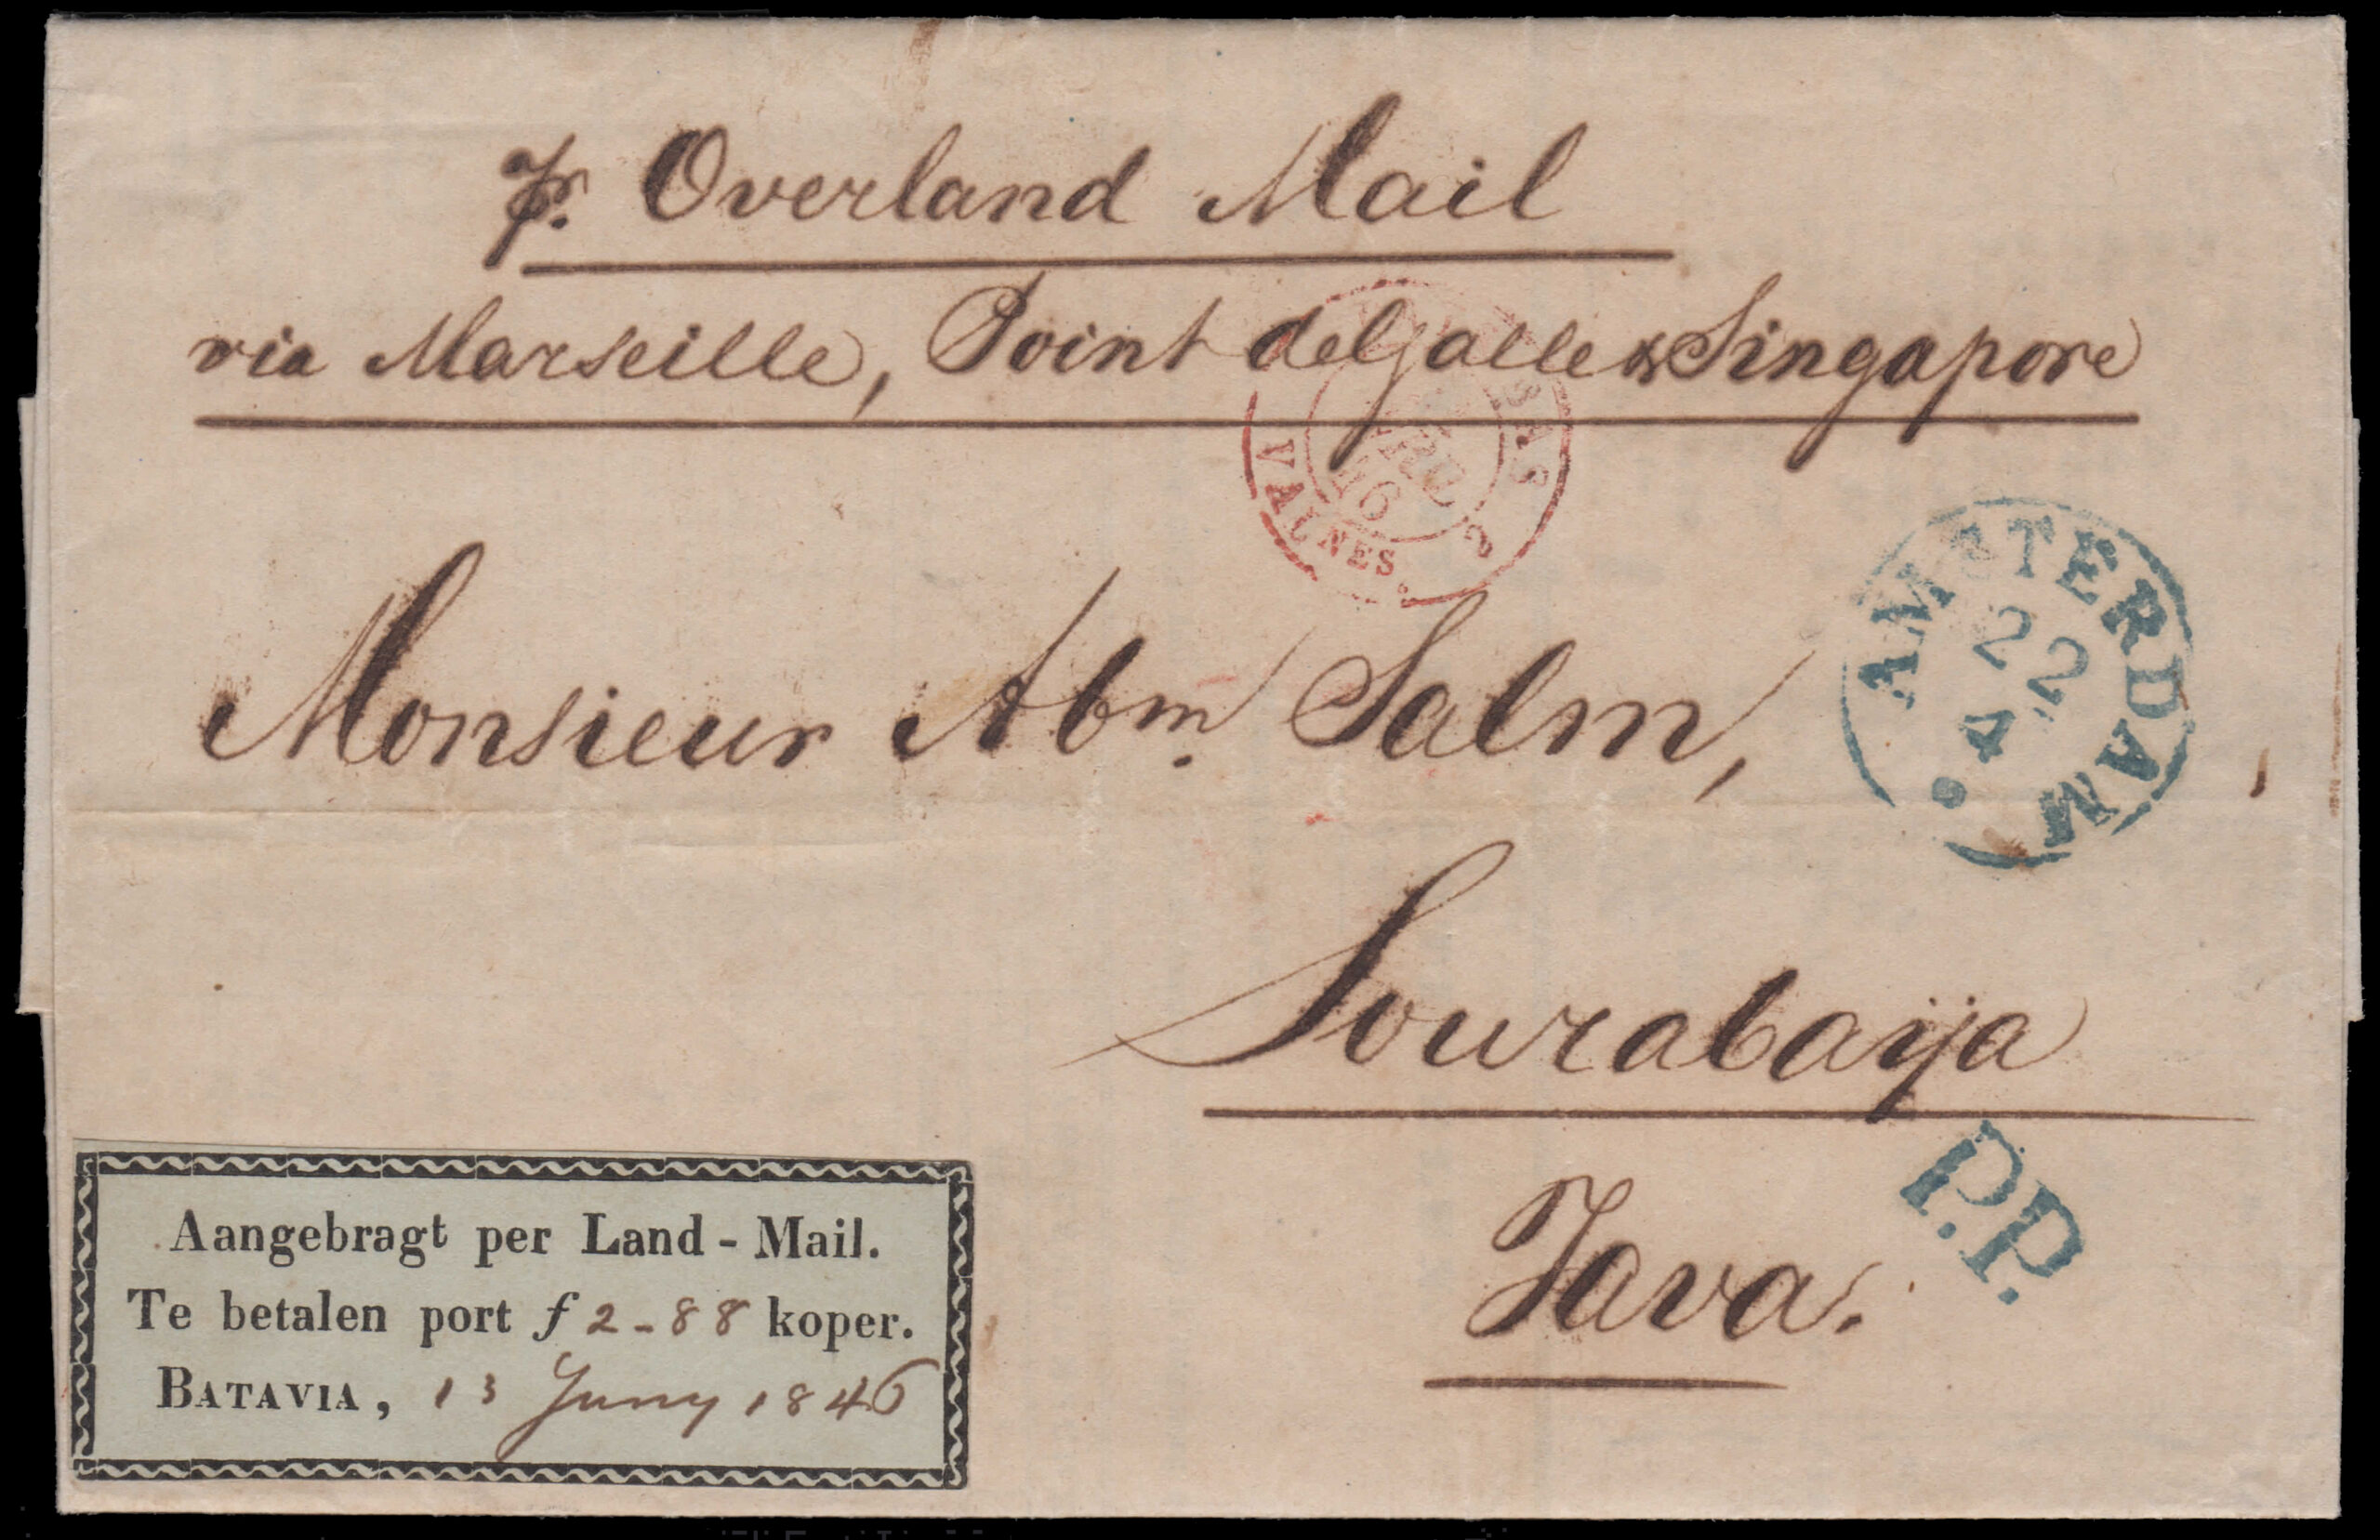 pr. Overland Mail
via Marseille, Point de Galle & Singapore
BAS
2
VALNES.
AMSTERDAM
22
4
Monsieur Abm. Salm,
Sourabaija
Java.
P.P.
Aangebragt per Land-Mail.
Te betalen port f 2-88 koper.
BATAVIA, 13 Juny 1846